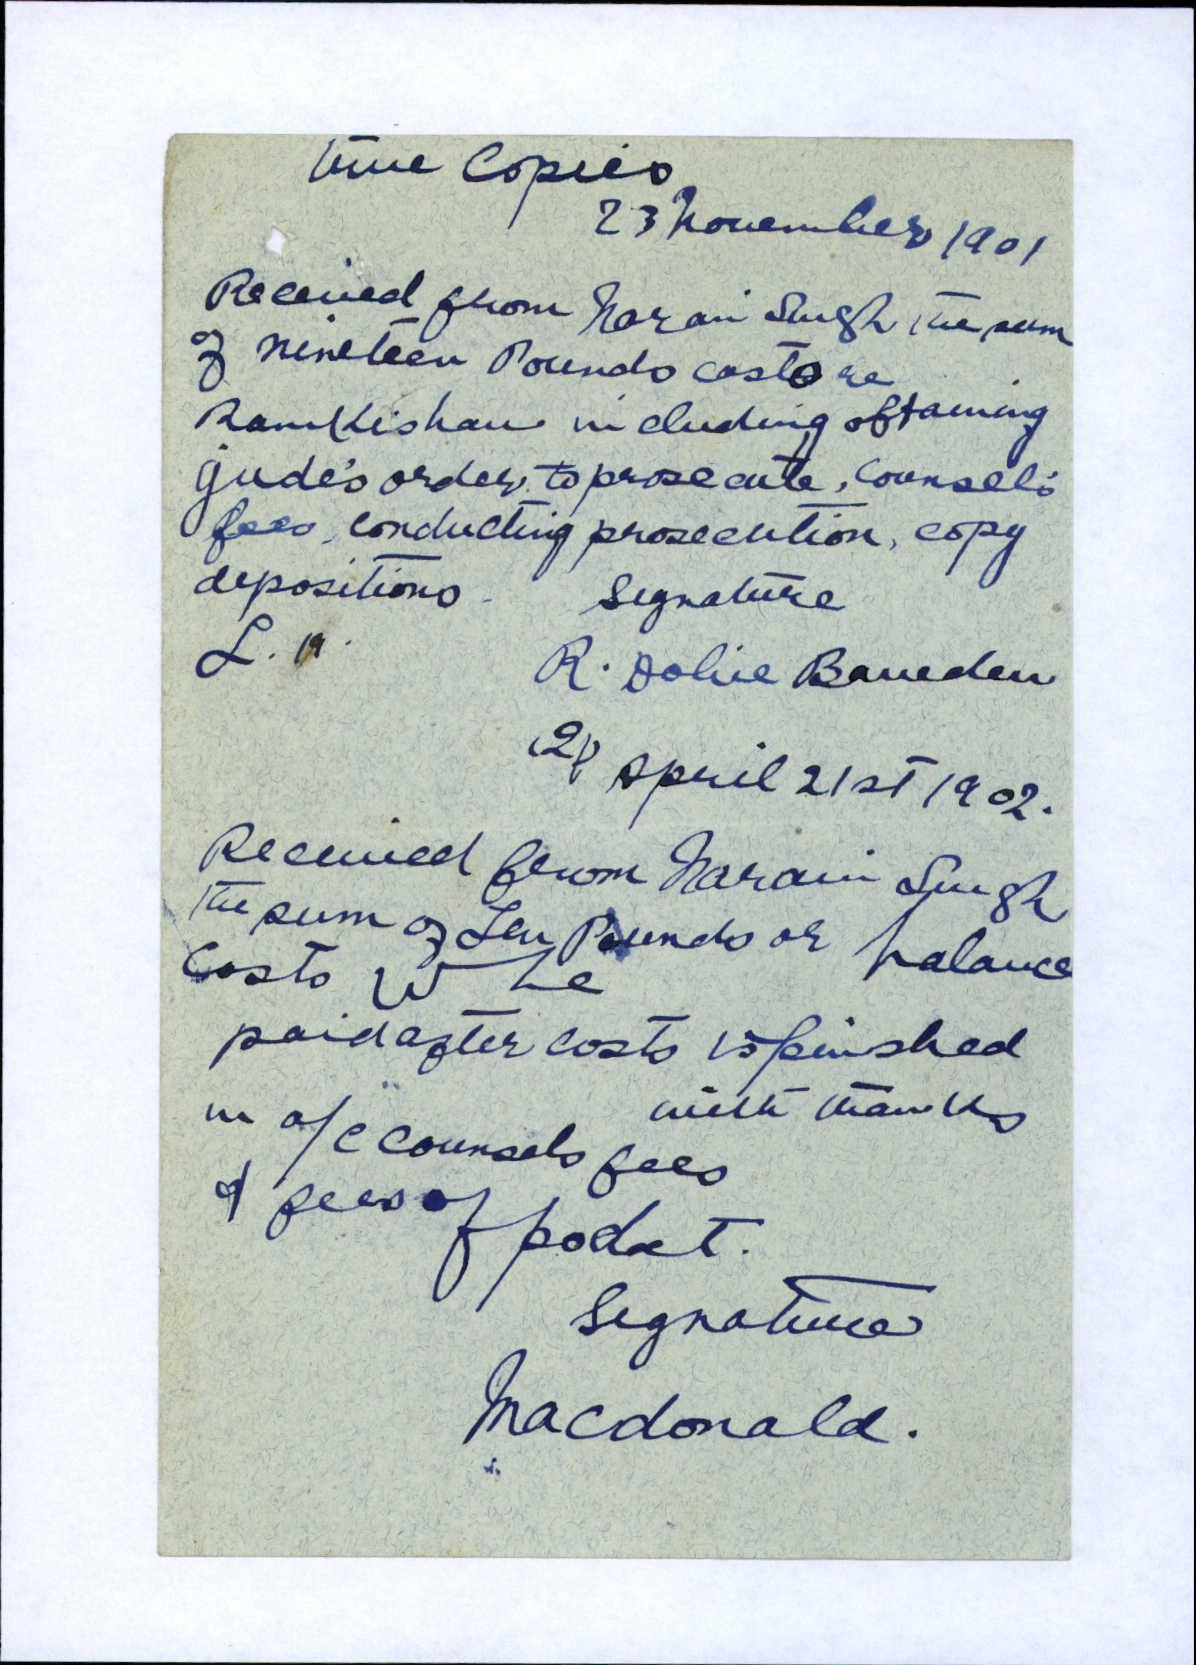 true Copies
23 November 1901
Received from Narain Singh the sum
of nineteen Pounds costs re
RamKishan including obtaining
jude's order to prosecute, counsel's
fees, conducting prosecution, copy
depositions. Signature
£. 19.
R. Dobie
(2) April 21st 1902.
Received from Narain Singh
the sum of Ten Pounds or balance
Costs to be
paid after costs is finished
with thanks
in a/c counsels fees
& fees of pocket.
Signature
Macdonald.